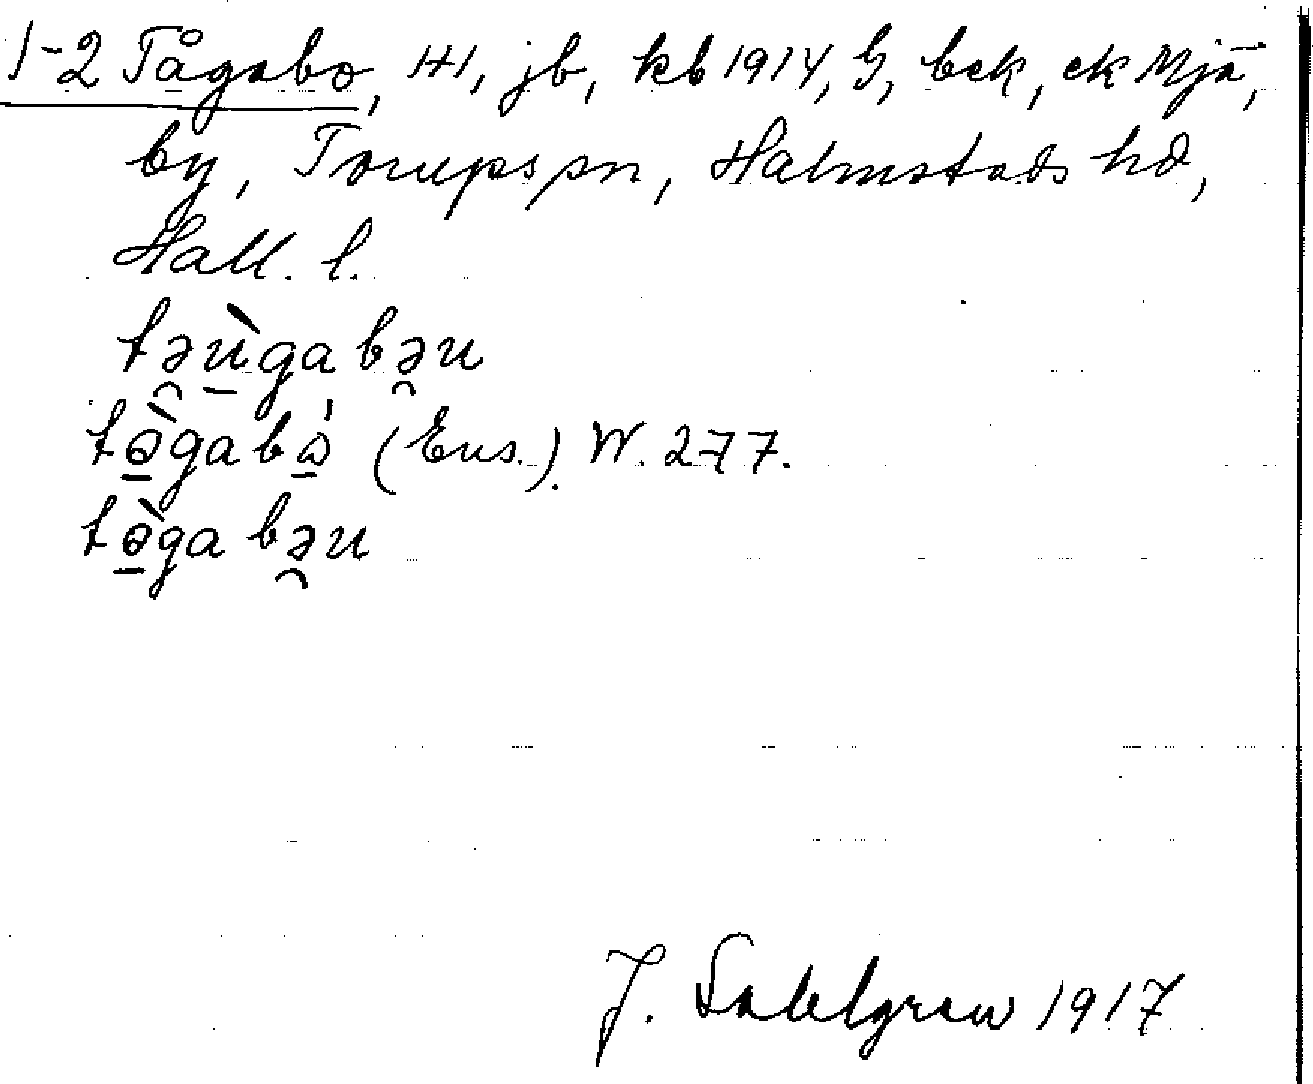 1-2 Tågabo, H1, jb, kb 1914, G, bek, ek Mjä,
by, Torups sn, Halmstads hd,
Hall. l.
təùga bəu
tògabó (Ens.) W. 277.
tòga bəu
J. Sahlgren 1917